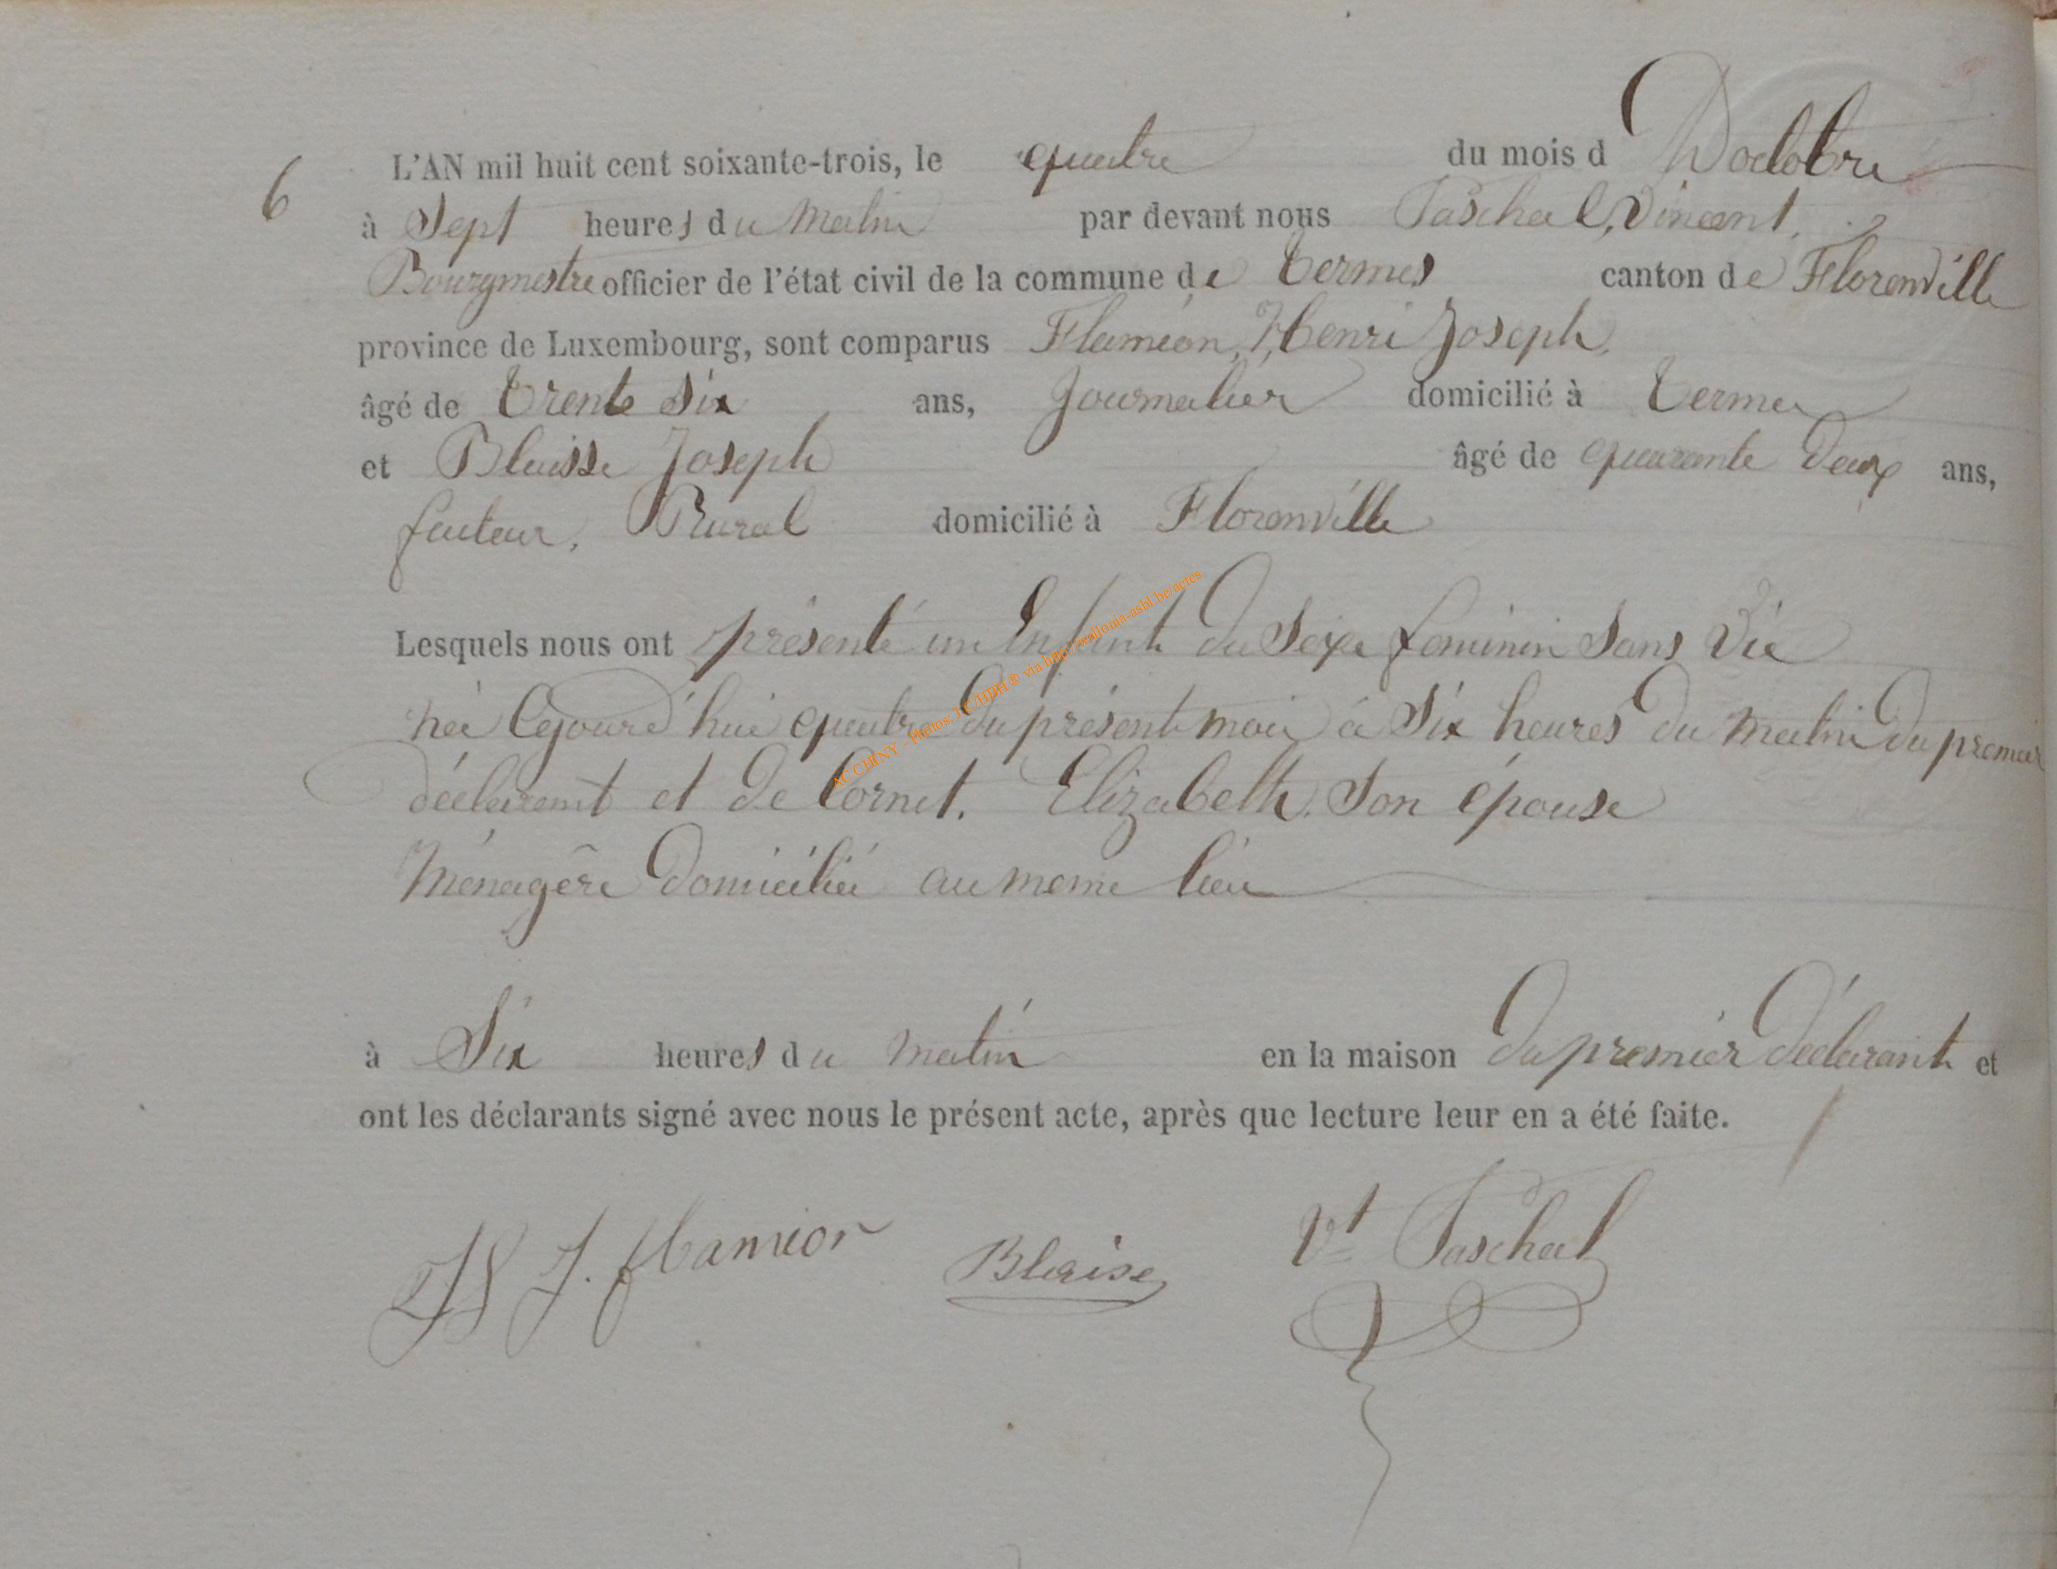 6 L'AN mil huit cent soixante-trois, le quatre du mois d D'octobre
à Sept heures du Matin par devant nous Paschal, Vincent,
Bourgmestre officier de l'état civil de la commune de Termes canton de Florenville
province de Luxembourg, sont comparus Flamion, Henri Joseph,
âgé de Trente Six ans, Journalier domicilié à Termes
et Blaisse Joseph âgé de quarante Deux ans,
facteur, Rural domicilié à Florenville
Lesquels nous ont présenté un Enfant du Sexe feminin Sans Vie
née Cejourd'hui quatre du présent mois à Six heures du Matin du premier
déclarant et de Cornet. Elizabeth. Son épouse
Ménagêre Domiciliée au meme lieu
à Six heures du matin en la maison du premier Déclarant et
ont les déclarants signé avec nous le présent acte, après que lecture leur en a été faite.
H J. flamion Blaise Vt Paschal
ACCHINY - Photos: J.C/HDH® via http://wallonia-asbl.be/actes